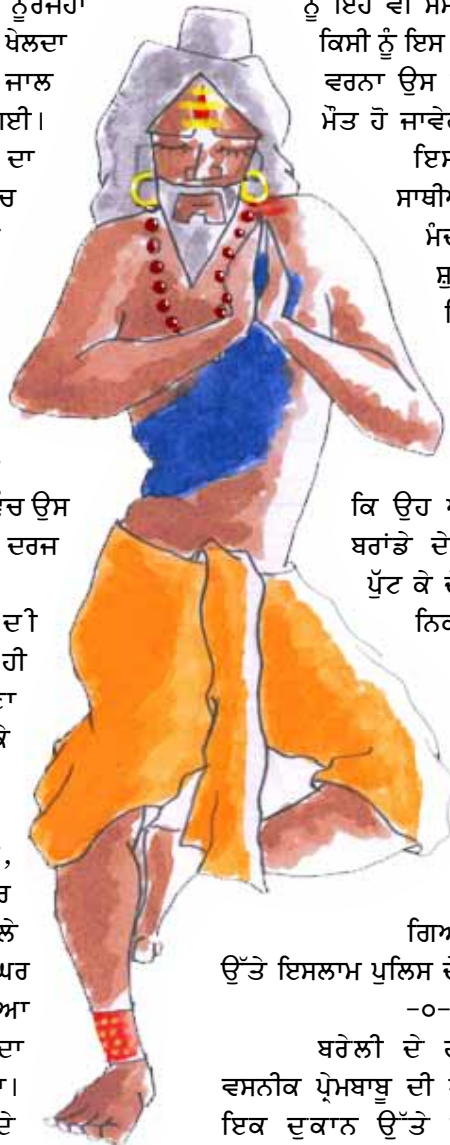 ਨੂਰਜਹਾਂ
ਖੇਲਦਾ
ਜਾਲ
ਗਈ।
ਦਾ
ਚ
ਉਸ
ਦਰਜ
ਦੀ
ਹੀ
ਕੇ
,
ਰ
ਲੇ
ਘਰ
ਆ
ਦਾ
ਦੇ
ਨੂੰ ਇਹ ਵੀ
ਕਿਸੀ ਨੂੰ ਇਸ
ਵਰਨਾ ਉਸ
ਮੌਤ ਹੋ ਜਾਵੇ
ਇਸ
ਸਾਥੀ
ਮੰ
ਸ਼ੁ
ਕਿ ਉਹ
ਬਰਾਂਡੇ ਦੇ
ਪੁੱਟ ਕੇ
ਨਿ
ਗਿਅ
ਉੱਤੇ ਇਸਲਾਮ ਪੁਲਿਸ ਦੇ
-੦-
ਬਰੇਲੀ ਦੇ
ਵਸਨੀਕ ਪ੍ਰੇਮਬਾਬੂ ਦੀ
ਇਕ ਦੁਕਾਨ ਉੱਤੇ